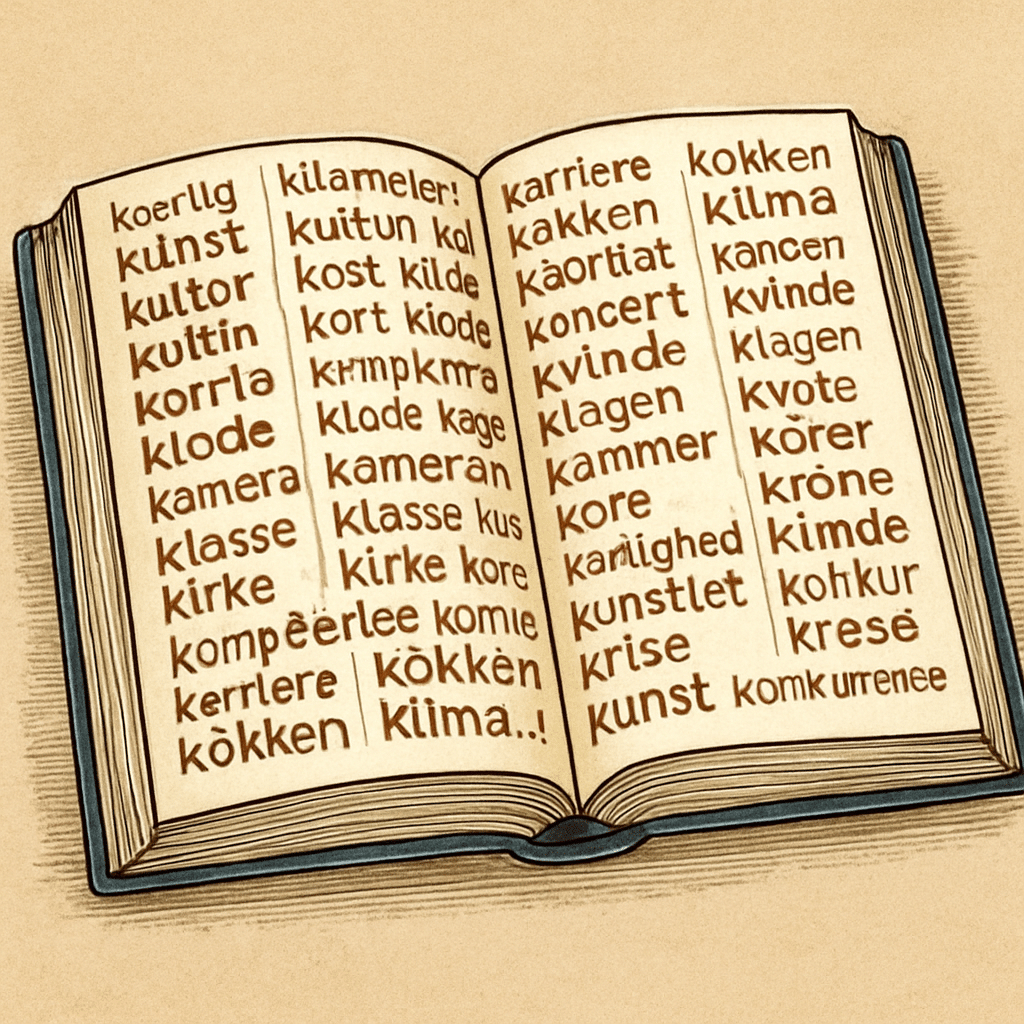 koerllg
kunst
kultor
kultin
korrla
klode
kamera
klasse
kirke
kompëërlee komie
kerrlere
kòkken
kilameler!
kuitun kal
kost kilde
kort kiode
klode kage
kameran
klasse kus
kirke kore
kòkkèn
kiima..!
karriere
kakken
kàortiat
koncert
kvinde
klagen
kammer
kore
kunstlet
krise
kunst komkurrenee
kokken
kilma
kancen
kvinde
klagen
kvote
kòrer
kròne
kimde
kresé